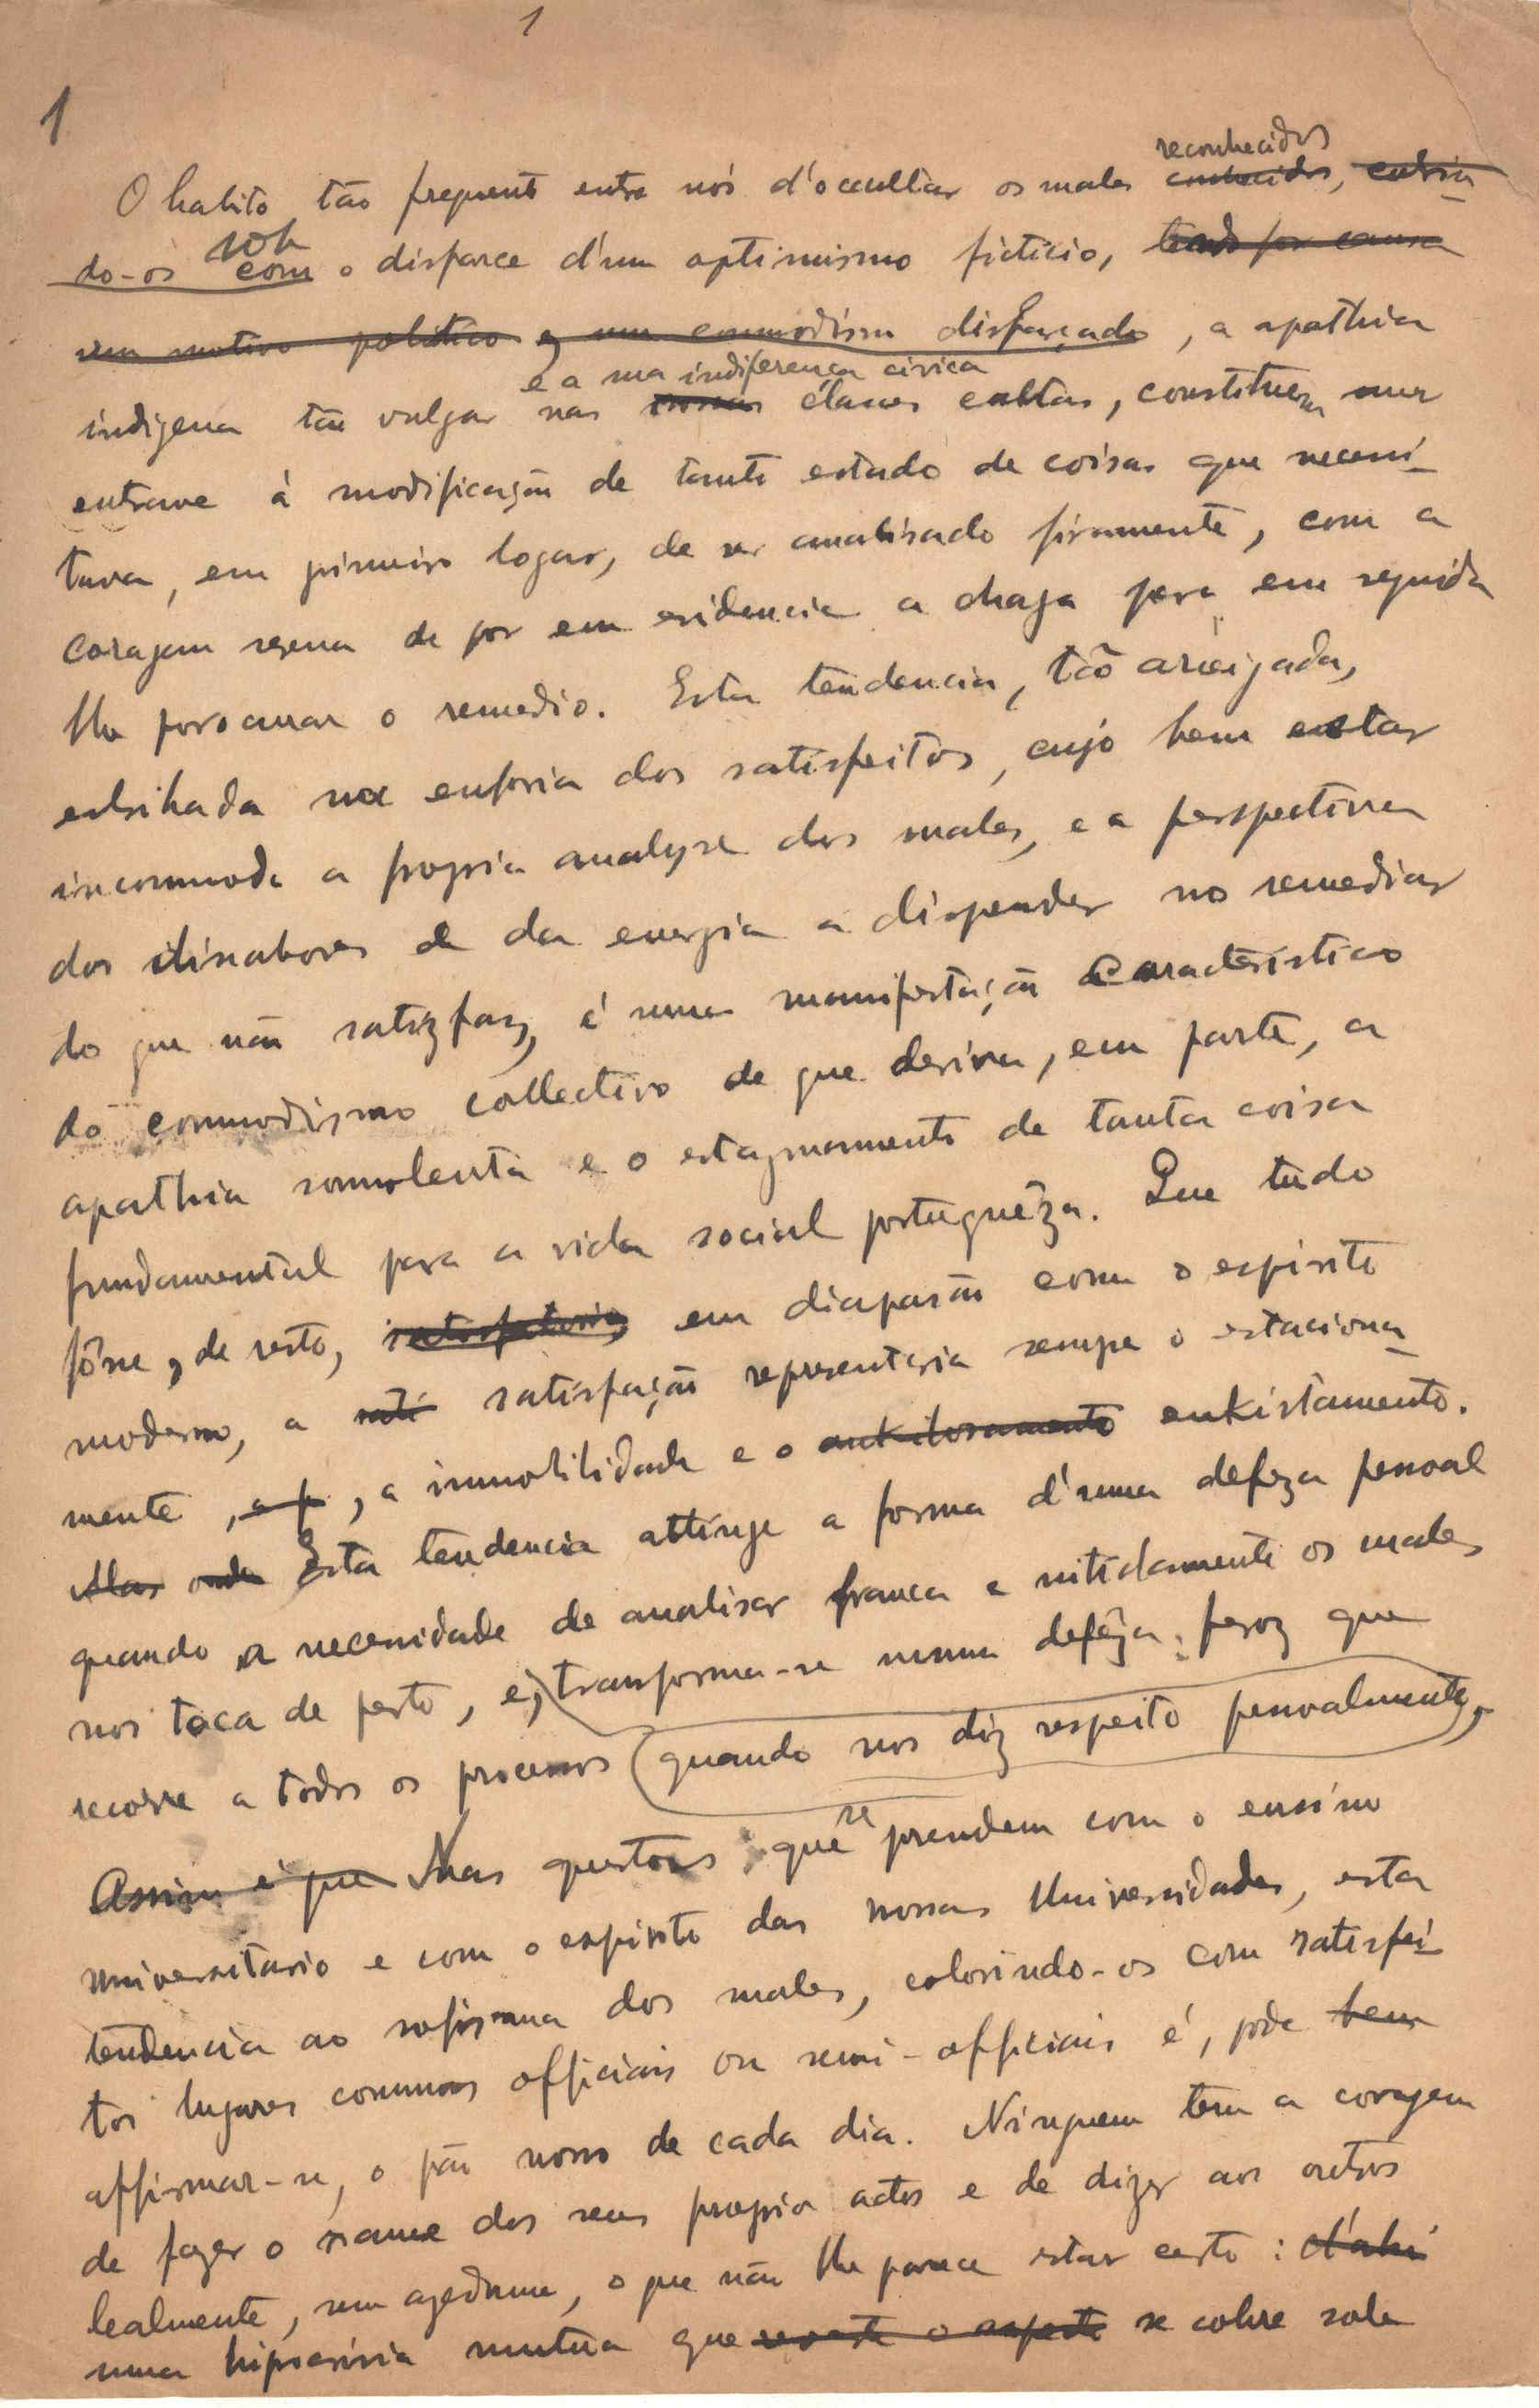 1
1
reconhecidos
O habito tão frequente entre nós d'occultar os males conhecidos, cobrin
do-os sob com o disfarce d'um optimismo ficticio, tendo por causa
um motivo politico e um commodismo disfarçado, a apathia
e a sua indiferença civica
indigena tão vulgar nas nossas classes cultas, constituem um
entrave á modificação de tanto estado de coisas que necessi
tava, em primeiro logar, de ser analisado firmemente, com a
coragem serena de pôr em evidencia a chaga para em seguida
lhe procurar o remedio. Esta tendencia, tão arreigada,
estribada na euforia dos satisfeitos, cujo bem estar
incommoda a propria analyse dos males, e a perspectiva
dos dissabores e da energia a dispender no remediar
do que não satisfaz, é uma manifestação caracteristica
do commodismo collectivo de que deriva, em parte, a
apathia somnolenta e o estagnamento de tanta coisa
fundamental para a vida social portuguêza. Que tudo
fôsse, de resto, satisfatorio, em diapasão com o espirito
moderno, a sati satisfação representaria sempre o estaciona
mento, a p, a immobilidade e o ankilosamento enkistamento.
Mas onde Esta tendencia attinge a forma d'uma defeza pessoal
quando a necessidade de analisar franca e nitidamente os males
nos toca de perto, e, transforma-se numa defêza feroz que
recorre a todos os processos quando nos diz respeito pessoalmente,
Assim é que Nas questões que se prendem com o ensino
universitario e com o espirito das nossas Universidades, esta
tendencia ao sofisma dos males, colorindo-os com satisfei
tos lugares communs officiais ou semi-officiais é, pode bem
affirmar-se, o pão nosso de cada dia. Ninguem tem a coragem
de fazer o exame dos seus proprios actos e de dizer aos outros
lealmente, sem azedume, o que não lhe parece estar certo: d'ahi
uma hipocrisia mutua que reveste o aspecto se cobre sob